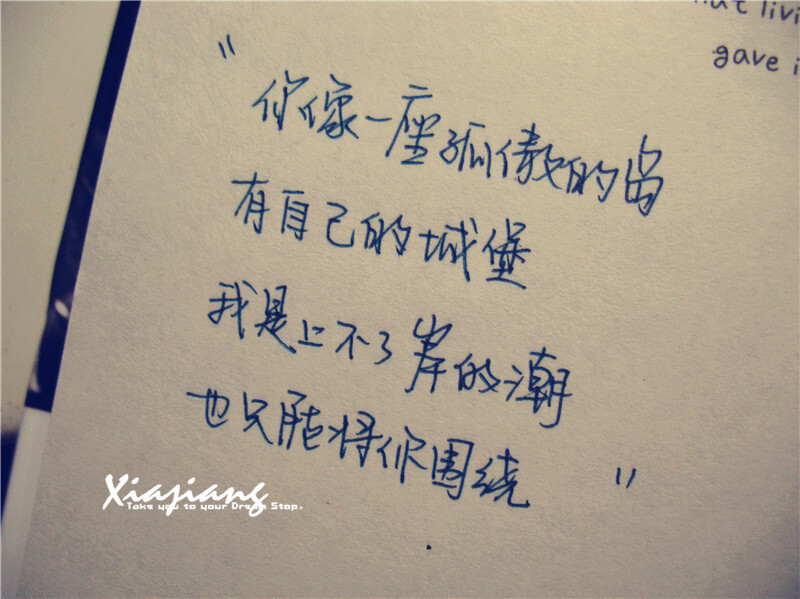 gave i
"你像一座孤傲的岛
有自己的城堡
我是上不了岸的潮
也只能将你围绕"
Xiajiang
Take you to your Dream Stop.